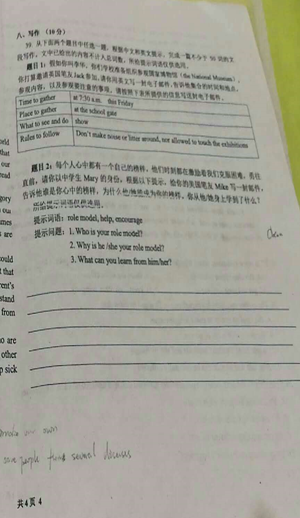 八、写作（10分）
39. 从下面两个题目中任选一题，根据中文和英文提示，完成一篇不少于50词的文
段写作。文中已给出的内容不计入总词数。所给提示词语仅供选用。
题目1：假如你叫李华，你们学校准备组织参观国家博物馆（the National Museum），
你打算邀请英国笔友Jack参加。请你用英文写一封电子邮件，告诉他集合的时间和地点，
参观内容，以及参观要注意的事项。请按照下表所提供的信息写这封电子邮件。
Time to gather at 7:30 a.m. this Friday
Place to gather at the school gate
What to see and do show
Rules to follow Don't make noise or litter around, not allowed to touch the exhibitions
题目2：每个人心中都有一个自己的榜样，他们时刻都在激励着我们克服困难，勇往
直前。请你以中学生 Mary 的身份，根据以下提示，给你的美国笔友 Mike 写一封邮件，
告诉他谁是你心中的榜样，为什么他/她是你的榜样，你从他/她身上学到了什么？
所给提示词语仅供选用。
提示词语：role model, help, encourage
提示问题：1. Who is your role model?
2. Why is he /she your role model?
3. What can you learn from him/her?
orld
that
our
read
gory
our
mes
s are
could
t that
rent's
stand
from
ho are
other
p sick
own
save people several
共4页 4